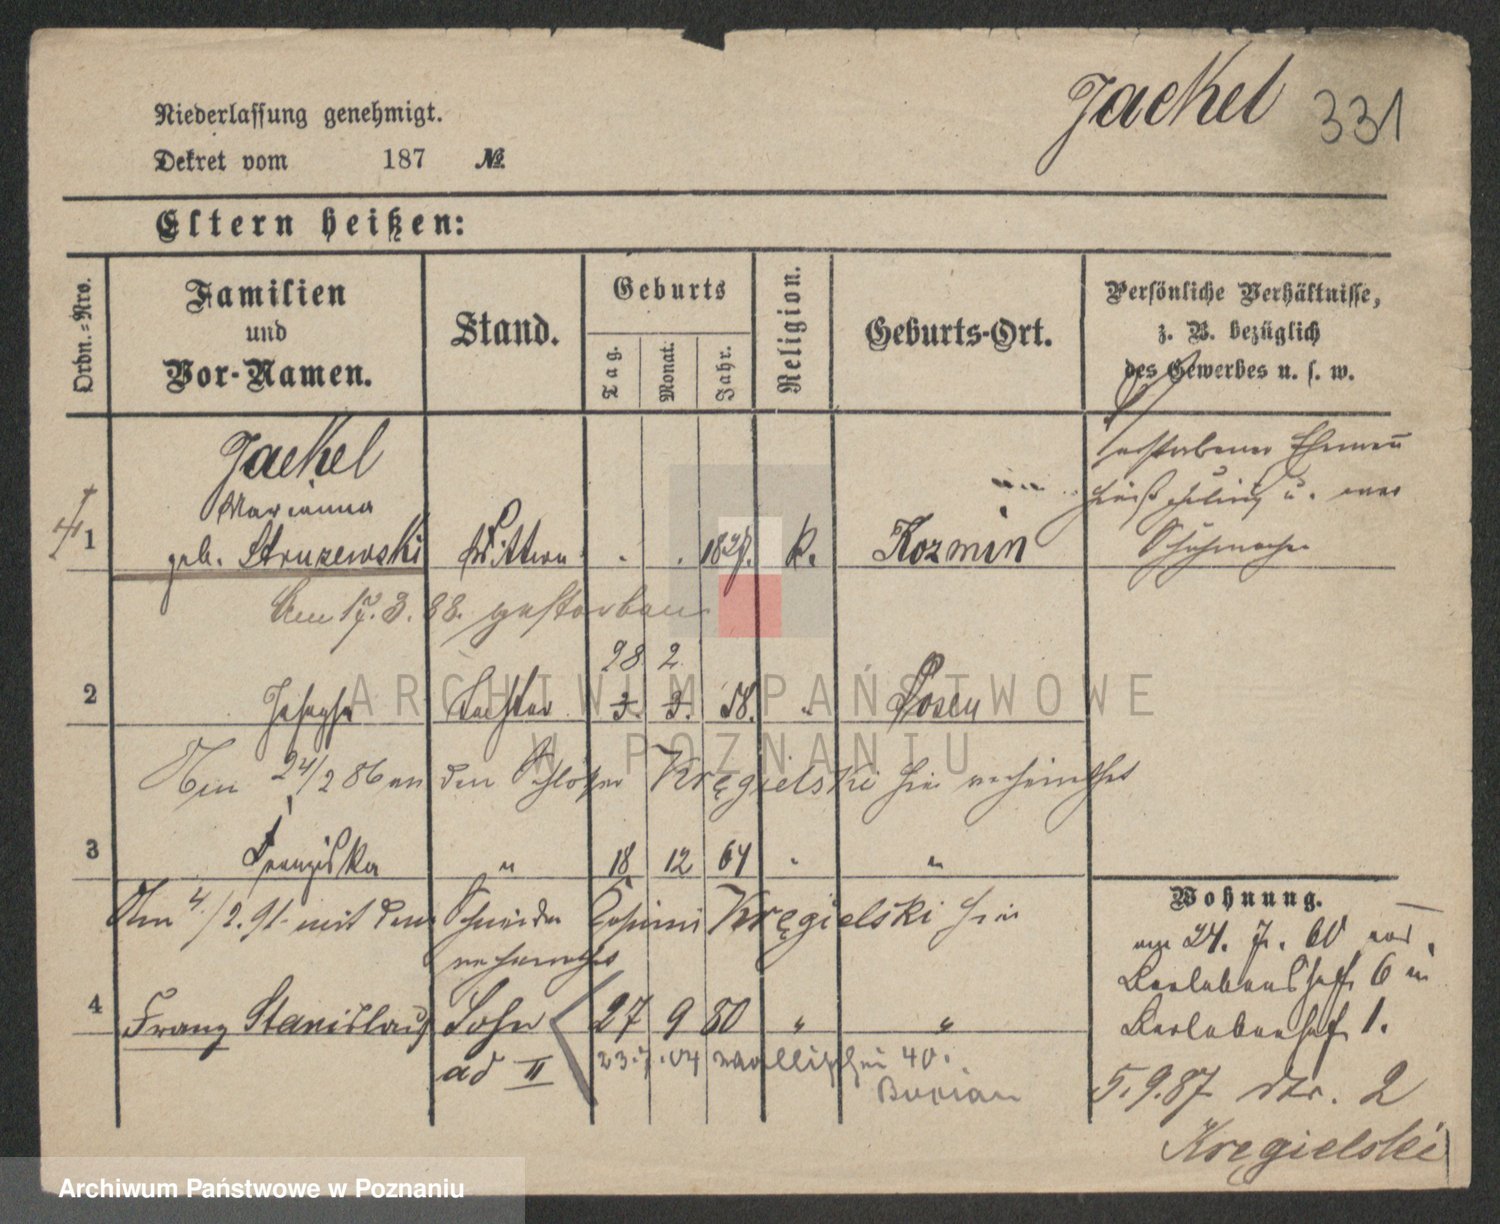 Jaekel 331
Niederlassung genehmigt.
Dekret vom 187 №
Eltern heißen:
Ordn.=Nro.
Familien
und
Vor-Namen.
Stand.
Geburts
Tag. Monat. Jahr.
Religion.
Geburts-Ort.
Persönliche Verhältnisse,
z. B. bezüglich
des Gewerbes u. s. w.
Jaekel
Marianna
1 geb. Struzewski Wittwe . . 1827. K. Kozmin
verstorbener Ehemann
hieß u. war
Schuhmacher
Am 17.3.88. gestorben
28 2
2 Josepha Tochter 3. 3. 58. " Posen
Am 24/2 86 an den Schlosser Kręgielski hier verheirathet
3 Franziska " 18 12 64 " "
Am 4/2.91. mit dem Schneider Kręgielski hier
verheirathet
4 Franz Stanislaus Sohn 27 9 80 " "
ad II
23.7.04 Wallischei 40.
Burian
Wohnung.
am 24. 7. 60 von
6 in
1.
5.9.87 dto. 2
Kręgielski
ARCHIWUM PAŃSTWOWE
W POZNANIU
Archiwum Państwowe w Poznaniu